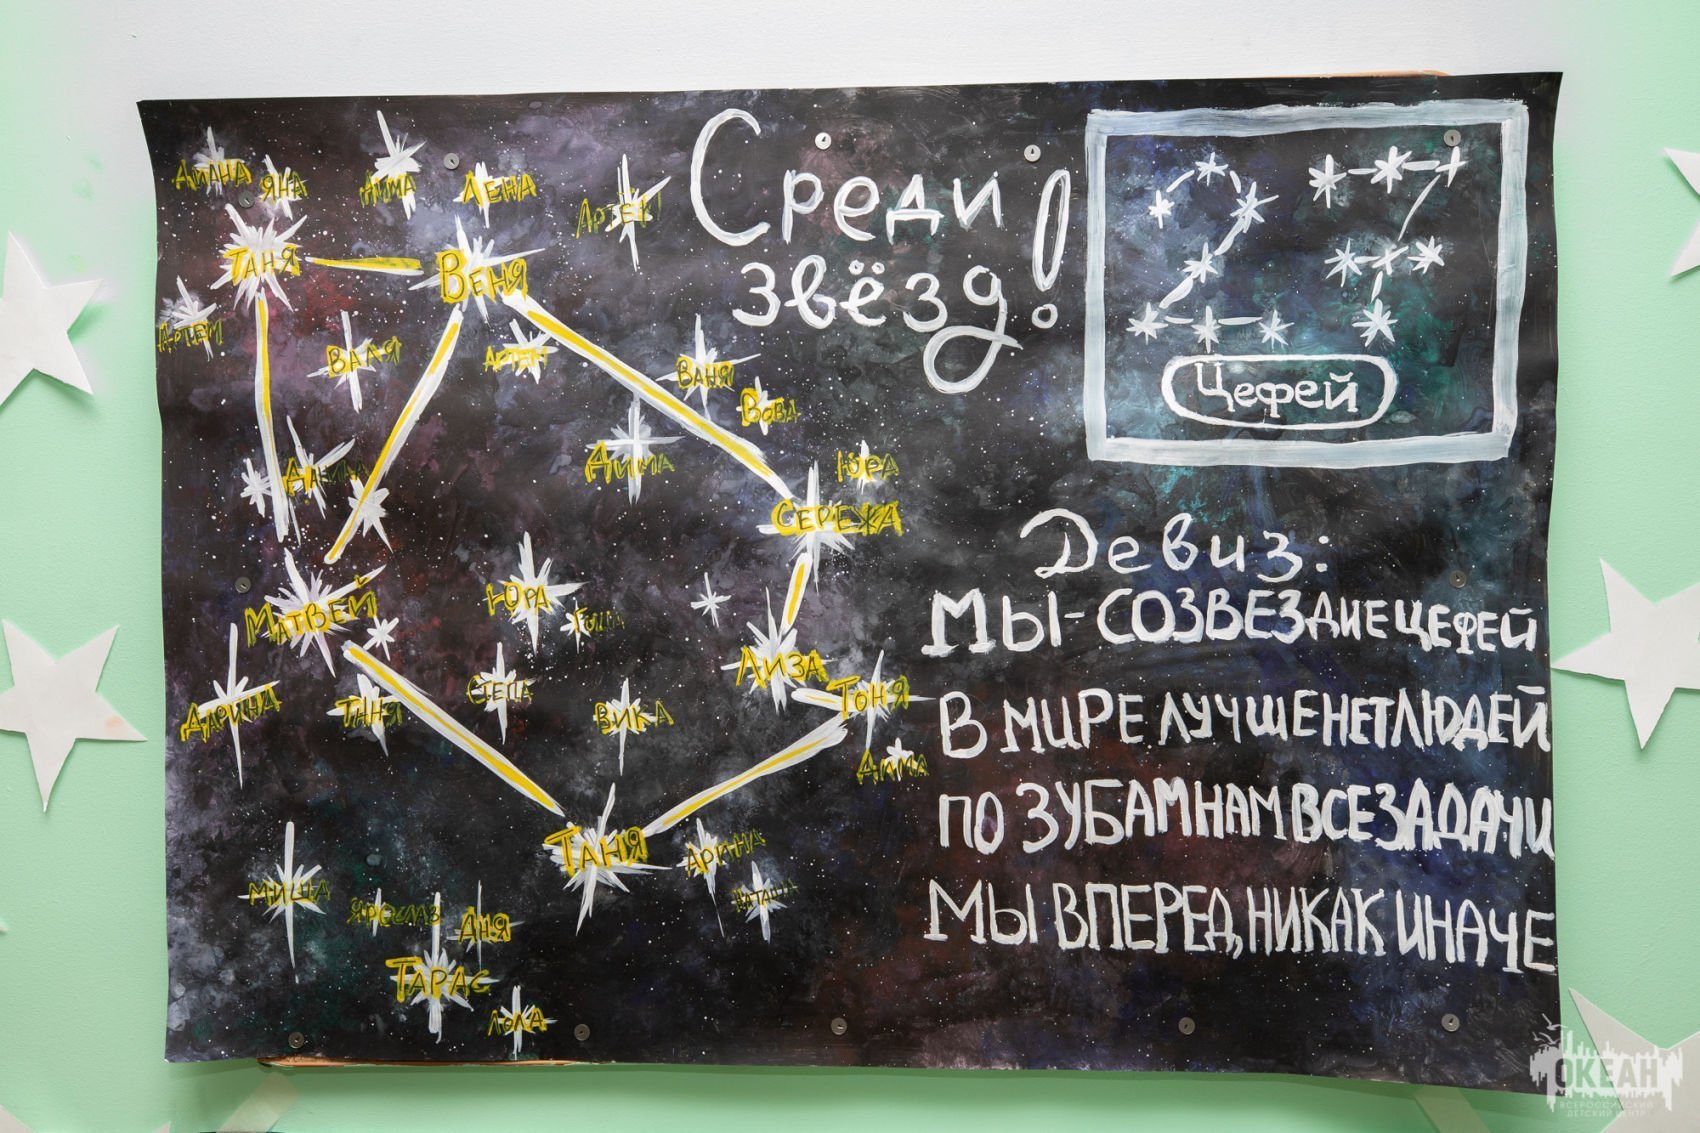 Среди
звёзд!
27
Цефей
Девиз:
Мы - СОЗВЕЗДИЕ ЦЕФЕЙ
В МИРЕ ЛУЧШЕ НЕТ ЛЮДЕЙ
ПО ЗУБАМ НАМ ВСЕ ЗАДАЧИ
МЫ ВПЕРЕД, НИКАК ИНАЧЕ
ДИАНА
ЯНА
ДИМА
ЛЕНА
АРТЕМ
ТАНЯ
ВЕНЯ
АРТЕМ
ВАЛЯ
АРТЕМ
ВАНЯ
ВОВА
ДИМА
ЮРА
СЕРЕЖА
МАТВЕЙ
ЮРА
ГОША
ЛИЗА
ТОНЯ
ДАРИНА
ТАНЯ
СТЕПА
ВИКА
ДИМА
ТАНЯ
АРИНА
НАТАША
МИША
ЯРОСЛАВ
АНЯ
ТАРАС
ЛОЛА
ОКЕАН
ВСЕРОССИЙСКИЙ
ДЕТСКИЙ ЦЕНТР